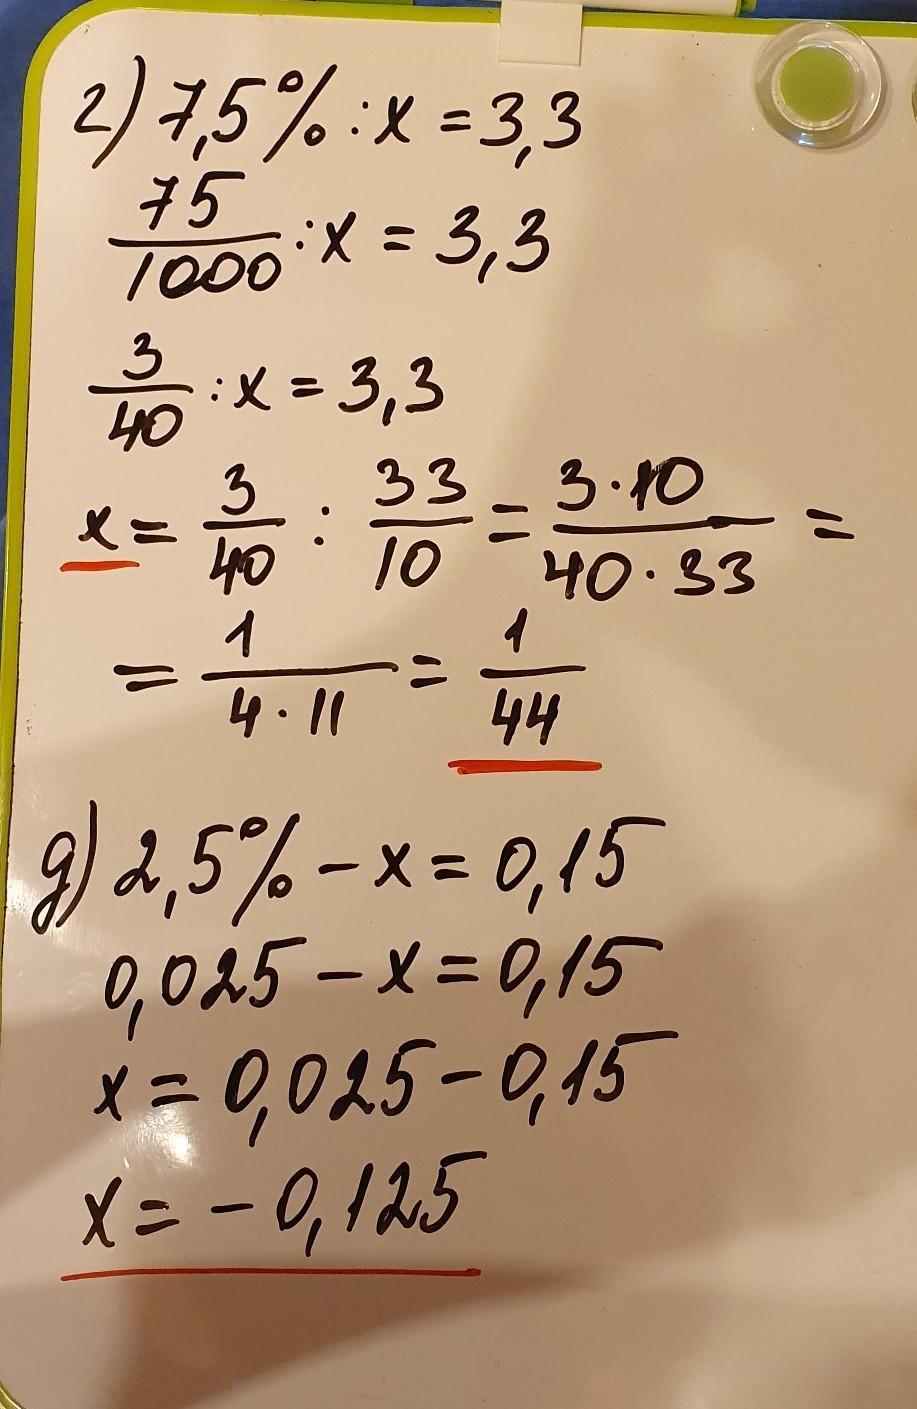 г) 7,5% : x = 3,3
75/1000 : x = 3,3
3/40 : x = 3,3
x = 3/40 : 33/10 = 3·10/40·33 =
= 1/4·11 = 1/44
д) 2,5% - x = 0,15
0,025 - x = 0,15
x = 0,025 - 0,15
x = - 0,125